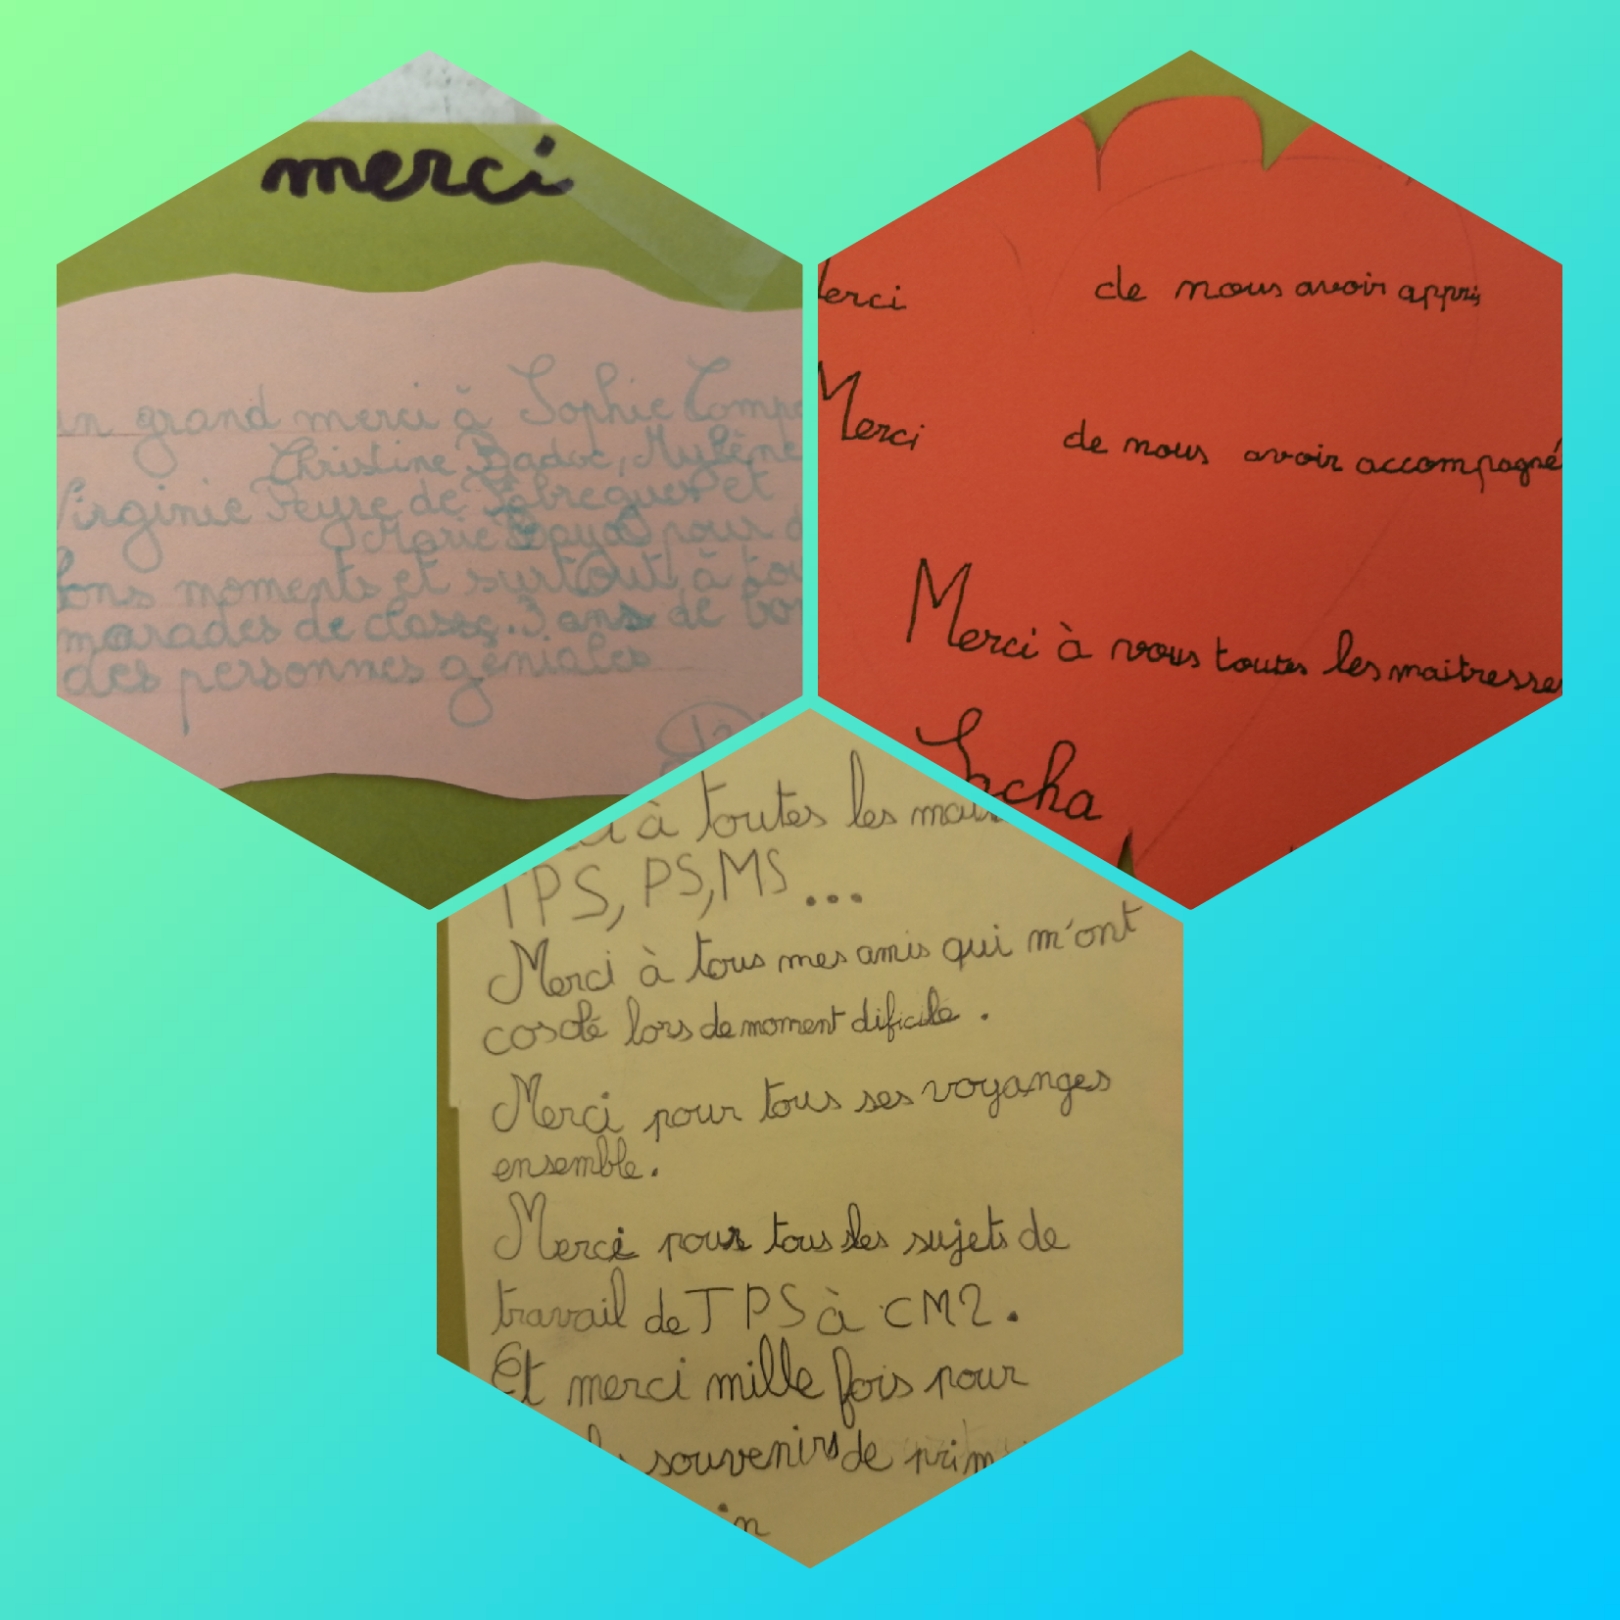 merci
un grand merci à Sophie
Christine Badoc, Mylène
Virginie Peyre de Fabregues et
Marie pour
bons moments et surtout à
marades de classe. 3 ans de
des personnes géniales
Merci de nous avoir appris
Merci de nous avoir accompagné
Merci à vous toutes les maitresse
Sacha
à toutes les
TPS, PS, MS...
Merci à tous mes amis qui m'ont
cosolé lors de moment dificile.
Merci pour tous ses voyanges
ensemble.
Merci pour tous les sujets de
travail de TPS à CM2.
Et merci mille fois pour
souvenirs de prim